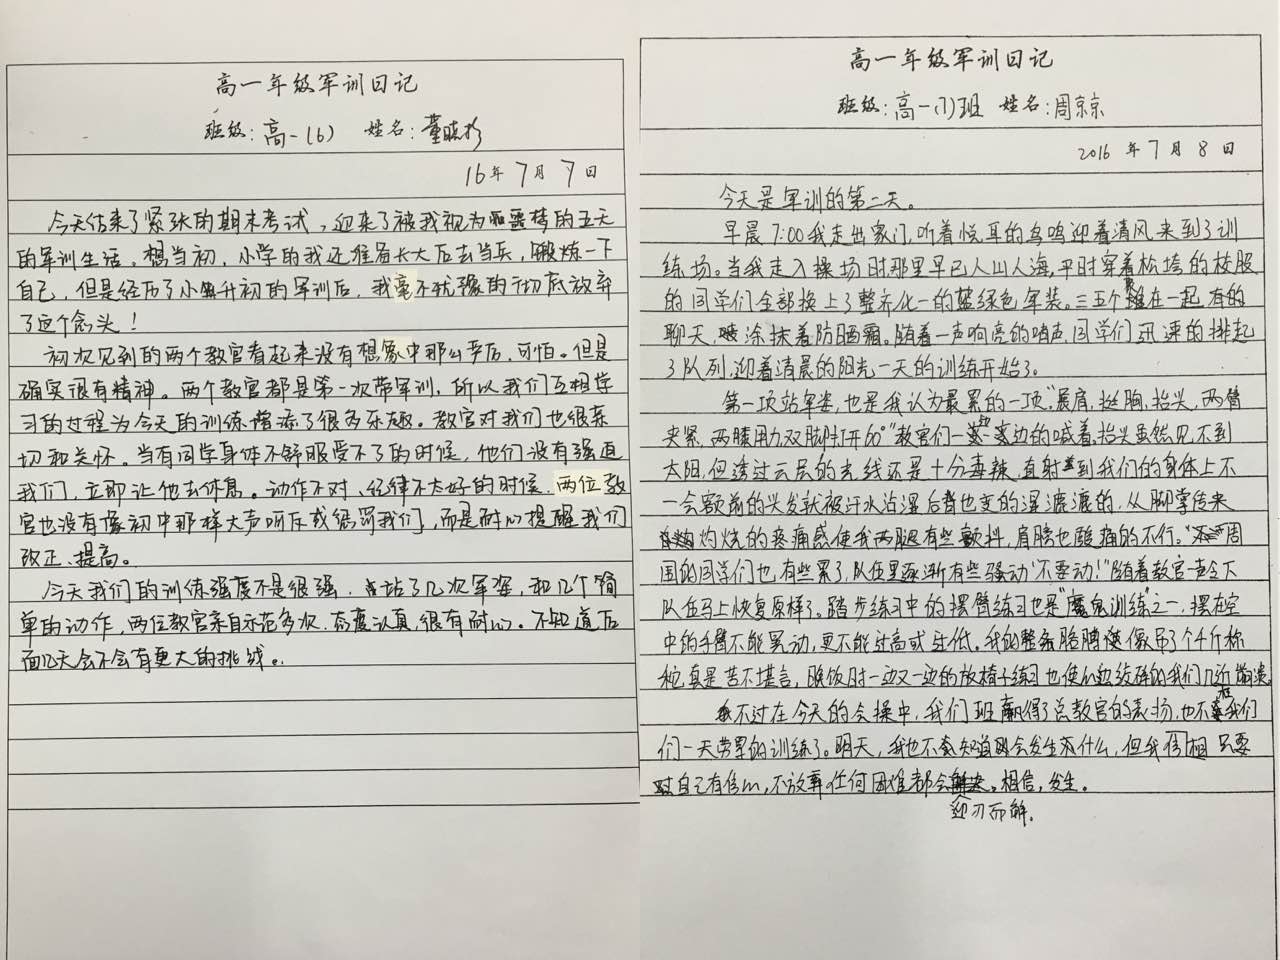 高一年级军训日记
班级：高一(6) 姓名：董晓杉
16年7月7日
今天结束了紧张的期末考试，迎来了被我视为噩梦的五天
的军训生活。想当初，小学的我还准备长大后去当兵，锻炼一下
自己，但是经历了小升初的军训后，我毫不犹豫的彻底放弃
了这个念头！
初次见到的两个教官看起来没有想象中那么严厉，可怕。但是
确实很有精神。两个教官都是第一次带军训，所以我们互相学
习的过程为今天的训练增添了很多乐趣。教官对我们也很亲
切和关怀。当有同学身体不舒服受不了的时候，他们没有强迫
我们，立即让他去休息。动作不对、纪律不太好的时候，两位教
官也没有像初中那样大声呵斥或惩罚我们，而是耐心提醒我们
改正、提高。
今天我们的训练强度不是很强，站了几次军姿，和几个简
单的动作，两位教官亲自示范多次，态度认真，很有耐心。不知道后
面几天会不会有更大的挑战。
高一年级军训日记
班级：高一(7)班 姓名：周京京
2016年7月8日
今天是军训的第二天。
早晨7:00我走出家门，听着悦耳的鸟鸣迎着清风来到了训
练场。当我走入操场时那里早已人山人海，平时穿着松垮的校服
的同学们全部换上了整齐化一的蓝绿色军装。三五个聚在一起，有的
聊天，涂抹着防晒霜。随着一声响亮的哨声，同学们迅速的排起
了队列，迎着清晨的阳光一天的训练开始了。
第一项站军姿，也是我认为最累的一项，“展肩，挺胸，抬头，两臂
夹紧，两膝用力，双脚打开60°”教官们一边一边的喊着，抬头虽然见不到
太阳，但透过云层的光线还是十分毒辣，直射到我们的身体上不
一会额前的头发就被汗水沾湿后背也变的湿漉漉的，从脚掌传来
灼烧的疼痛感使我两腿有些颤抖，肩膀也酸痛的不行。周
围的同学们也有些累了，队伍里逐渐有些骚动“不要动！”随着教官一声令下
队伍马上恢复原样了。踏步练习中的摆臂练习也是“魔鬼训练”之一，摆在空
中的手臂不能晃动，更不能过高或过低。我的整条胳膊像吊了个千斤称
砣，真是苦不堪言，晚饭时一边又一边的放椅子练习也使心力交瘁的我们几近崩溃。
不过在今天的会操中，我们班赢得了总教官的表扬，也不枉我们
们一天劳累的训练了。明天，我也不知道会发生什么，但我相信只要
对自己有信心，不放弃任何困难都会迎刃而解。相信，发生。